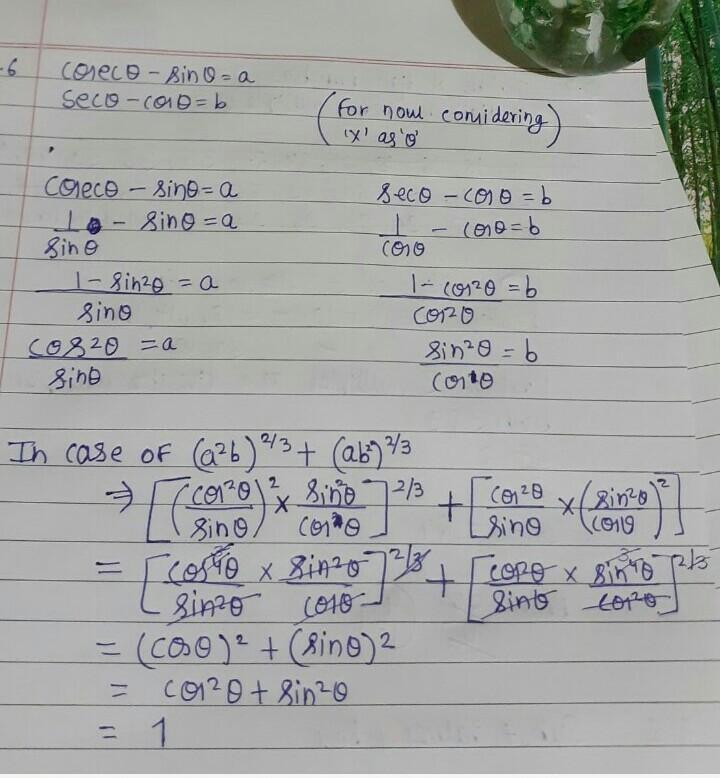 .6 cosecθ - sinθ = a
secθ - cosθ = b
(for now considering
'x' as 'θ')
cosecθ - sinθ = a
1 - sinθ = a
sinθ
1 - sin²θ = a
sinθ
cos²θ = a
sinθ
secθ - cosθ = b
1 - cosθ = b
cosθ
1 - cos²θ = b
cos²θ
sin²θ = b
cosθ
In case of (a²b)^2/3 + (ab²)^2/3
⇒ [(cos²θ/sinθ)² × sin²θ/cosθ]^2/3 + [cos²θ/sinθ × (sin²θ/cosθ)²]
= [cos⁴θ/sin²θ × sin²θ/cosθ]^2/3 + [cos²θ/sinθ × sin⁴θ/cos²θ]^2/3
= (cosθ)² + (sinθ)²
= cos²θ + sin²θ
= 1